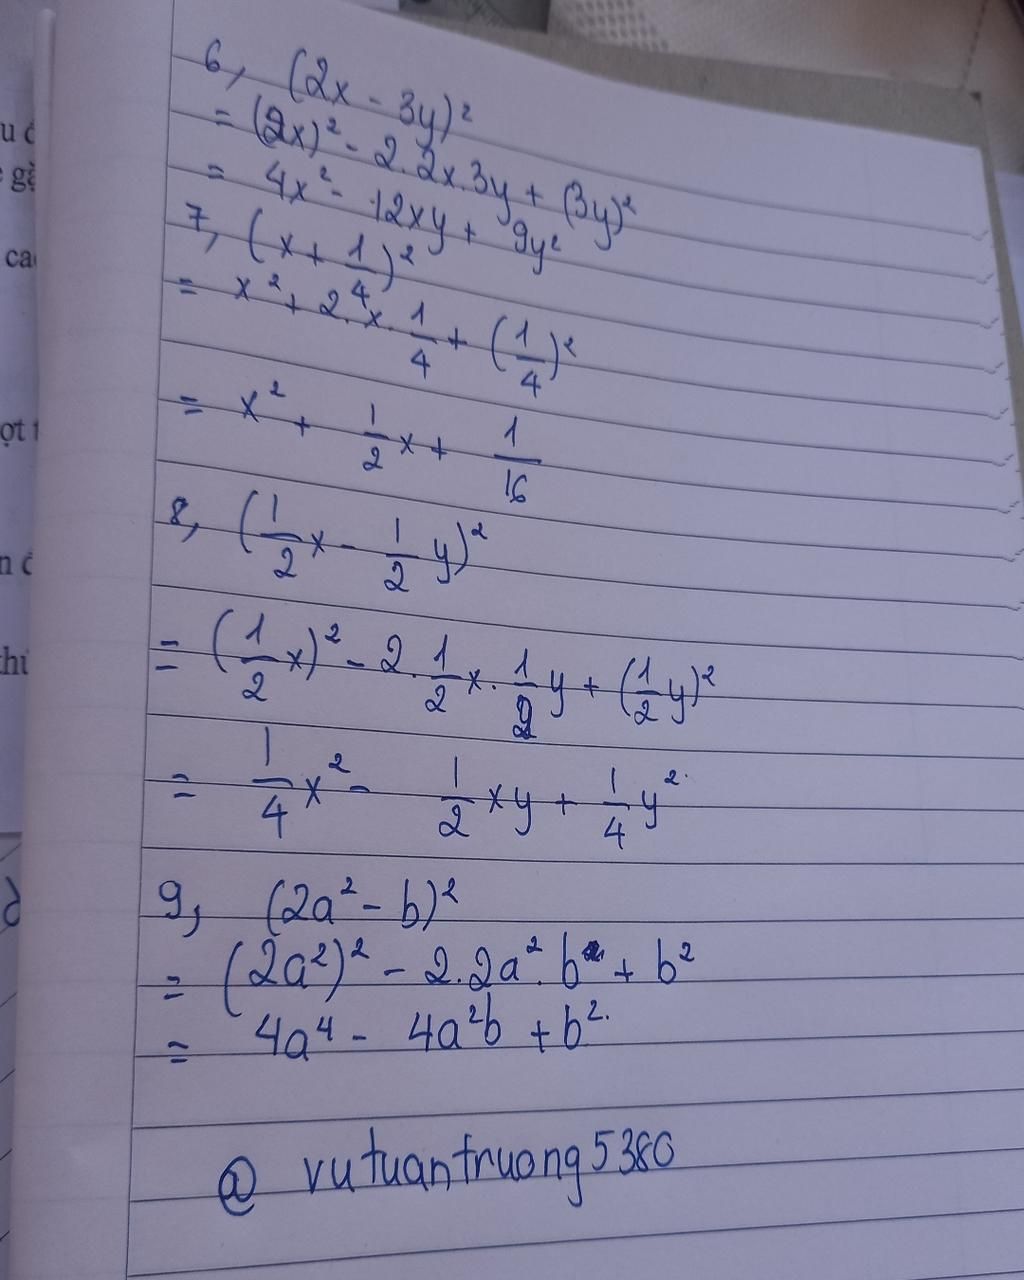 6, (2x - 3y)²
= (2x)² - 2.2x.3y + (3y)²
= 4x² - 12xy + 9y²
7, (x + 1/4)²
= x² + 2.x.1/4 + (1/4)²
= x² + 1/2x + 1/16
8, (1/2x - 1/2y)²
= (1/2x)² - 2.1/2x.1/2y + (1/2y)²
= 1/4x² - 1/2xy + 1/4y²
9, (2a² - b)²
= (2a²)² - 2.2a².b + b²
= 4a⁴ - 4a²b + b².
@ vutuantruong5380
u
gặ
ca
ợt
n